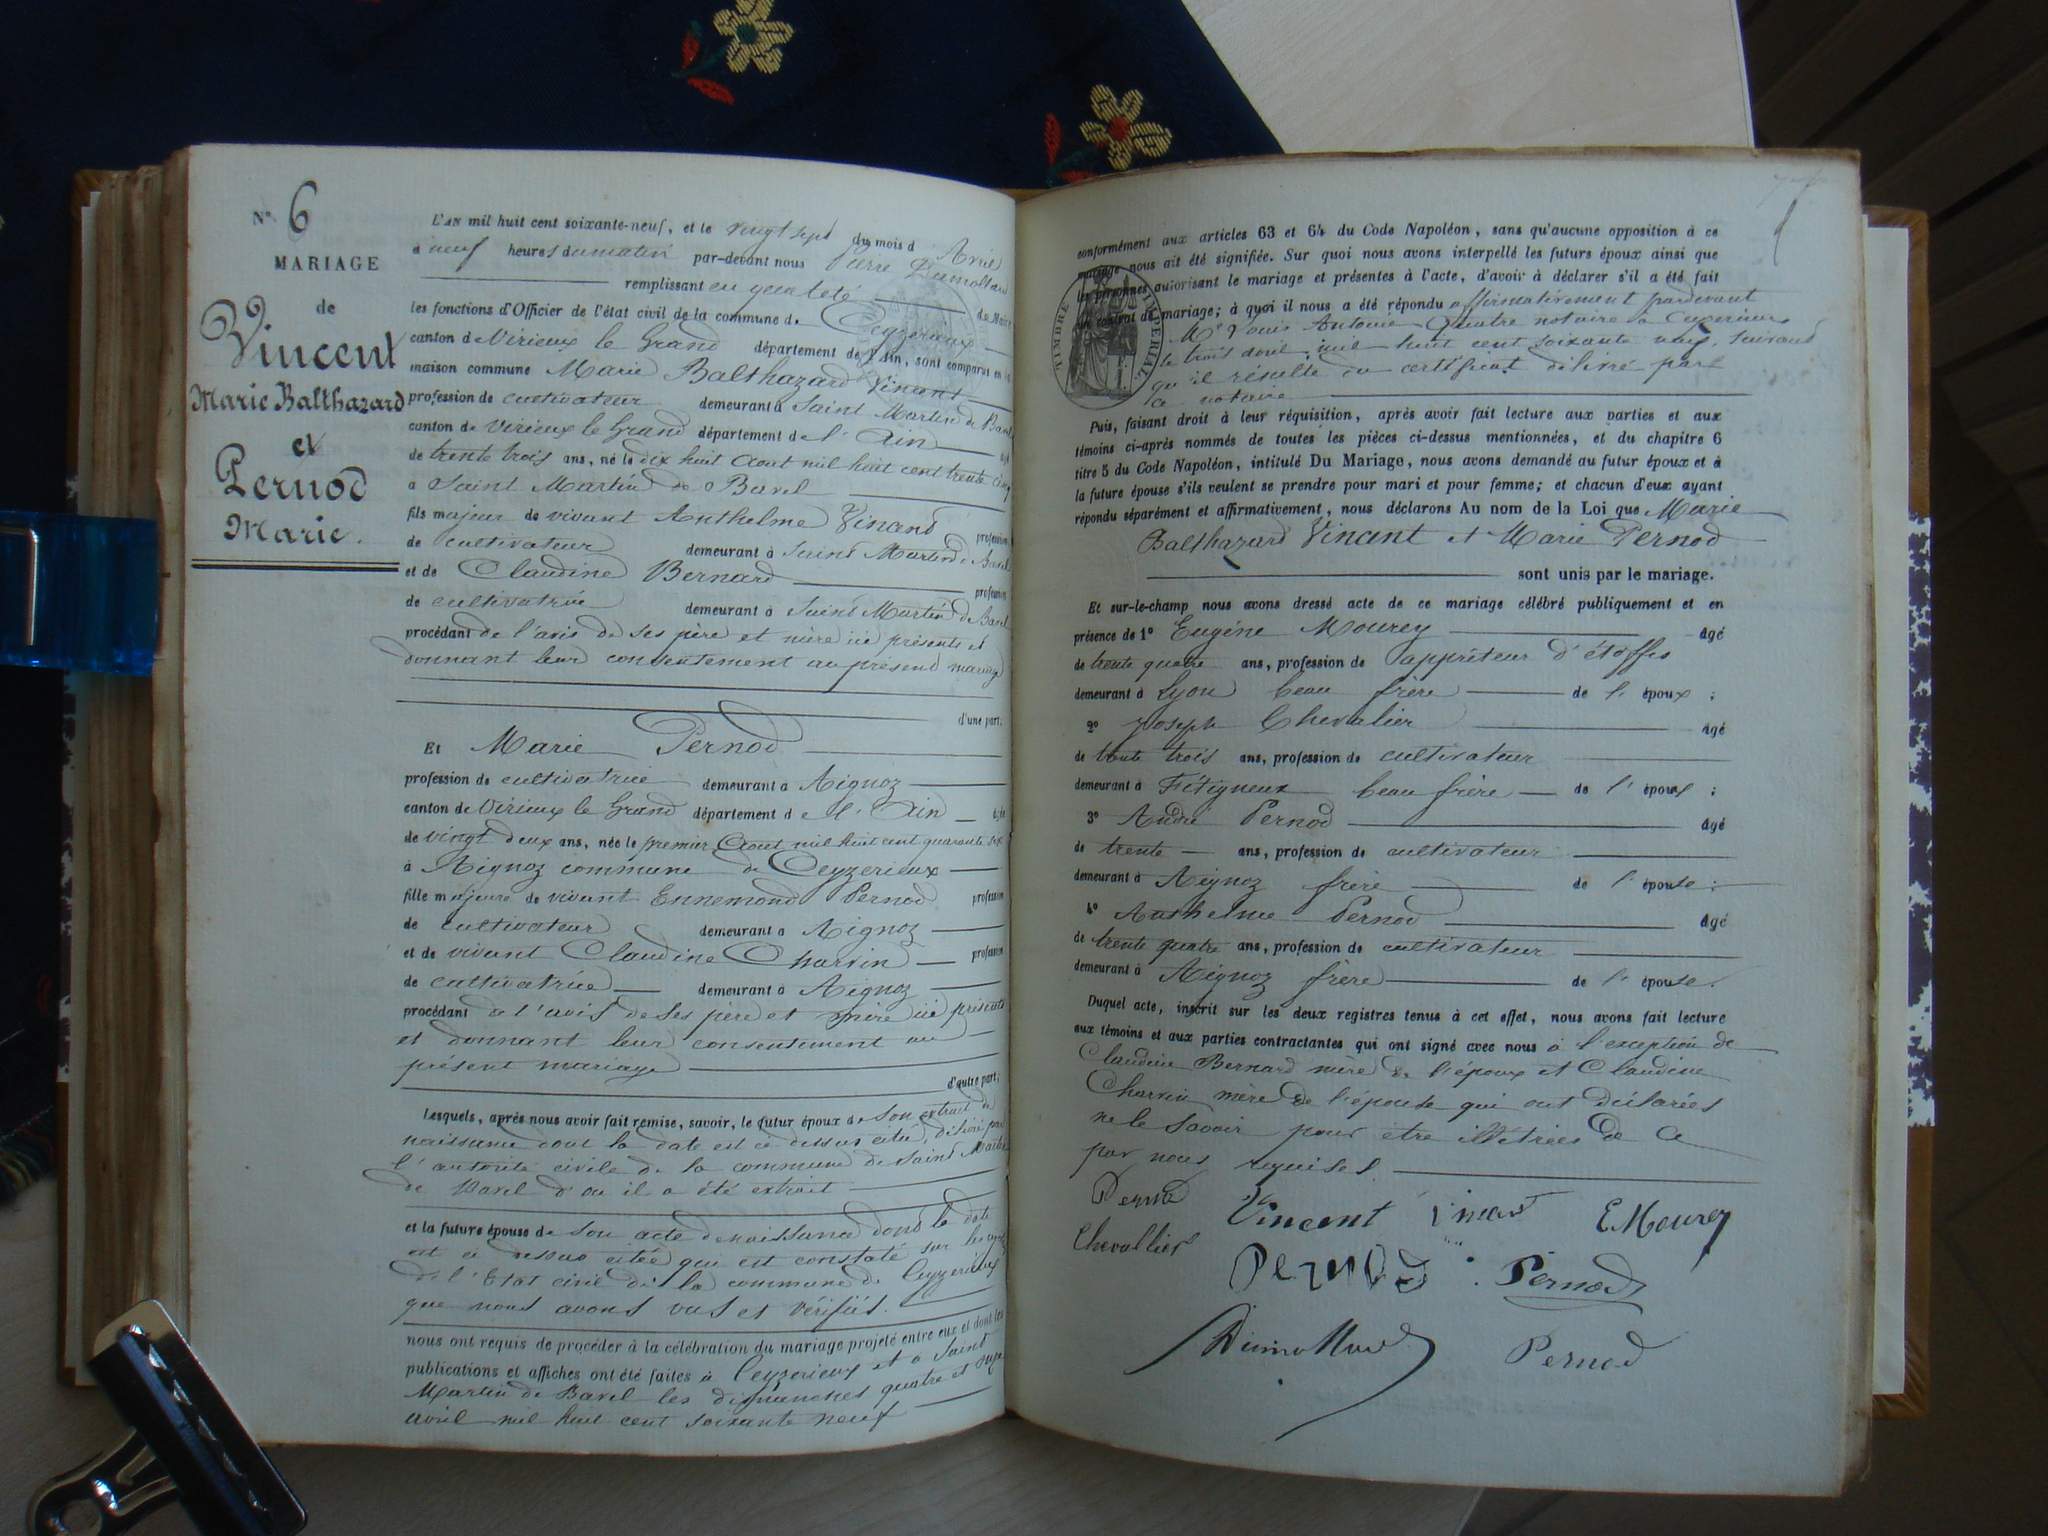 N° 6
MARIAGE
de
Vincent
Marie Balthazard
et
Pernod
Marie.
L'AN mil huit cent soixante-neuf, et le vingt sept du mois d Avril
à neuf heures du matin par-devant nous Pierre Dumollard
remplissant en qualité de Maire
les fonctions d'Officier de l'état civil de la commune de Ceyzerieux
canton de Virieux le Grand département de l'Ain, sont comparus en la
maison commune Marie Balthazard Vincent
profession de cultivateur demeurant à Saint Martin de Bavel
canton de Virieux le Grand département de l'Ain âgé
de trente trois ans, né le dix huit Aout mil huit cent trente cinq
à Saint Martin de Bavel
fils majeur de vivant Anthelme Vincend profession
de cultivateur demeurant à Saint Martin de Bavel
et de Claudine Bernard profession
de cultivatrice demeurant à Saint Martin de Bavel
procédant de l'avis de ses père et mère ici présents et
donnant leur consentement au présent mariage
d'une part.
Et Marie Pernod
profession de cultivatrice demeurant à Aignoz
canton de Virieux le Grand département de l'Ain âgée
de vingt deux ans, née le premier Aout mil huit cent quarante six
à Aignoz commune de Ceyzerieux
fille majeure de vivant Ennemond Pernod profession
de cultivateur demeurant à Aignoz
et de vivant Claudine Charvin profession
de cultivatrice demeurant à Aignoz
procédant de l'avis de ses père et mère ici présents
et donnant leur consentement au
présent mariage
d'autre part.
Lesquels, après nous avoir fait remise, savoir, le futur époux de son extrait de
naissance dont la date est ci dessus citée, délivré par
l'autorité civile de la commune de Saint Martin
de Bavel d'ou il a été extrait
et la future épouse de son acte de naissance dont la date
est ci dessus citée qui est constaté sur les
de l'Etat civil de la commune de Ceyzerieux
que nous avons vus et vérifiés.
nous ont requis de procéder à la célébration du mariage projeté entre eux et dont les
publications et affiches ont été faites à Ceyzerieux et à Saint
Martin de Bavel les dimanches quatre et onze
avril mil huit cent soixante neuf
conformément aux articles 63 et 64 du Code Napoléon, sans qu'aucune opposition à ce
mariage nous ait été signifiée. Sur quoi nous avons interpellé les futurs époux ainsi que
les personnes autorisant le mariage et présentes à l'acte, d'avoir à déclarer s'il a été fait
un contrat de mariage; à quoi il nous a été répondu affirmativement pardevant
Me Louis Antoine Quatre notaire à Ceyzerieux
le trois avril mil huit cent soixante neuf, suivant
qu'il résulte du certificat délivré par
ce notaire
TIMBRE IMPERIAL
Puis, faisant droit à leur réquisition, après avoir fait lecture aux parties et aux
témoins ci-après nommés de toutes les pièces ci-dessus mentionnées, et du chapitre 6
titre 5 du Code Napoléon, intitulé Du Mariage, nous avons demandé au futur époux et à
la future épouse s'ils veulent se prendre pour mari et pour femme; et chacun d'eux ayant
répondu séparément et affirmativement, nous déclarons Au nom de la Loi que Marie
Balthazard Vincent et Marie Pernod
sont unis par le mariage.
Et sur-le-champ nous avons dressé acte de ce mariage célébré publiquement et en
présence de 1° Eugéne Mourey âgé
de trente quatre ans, profession de apprêteur d'étoffes
demeurant à Lyon beau frère de l'époux ;
2° Joseph Chevalier âgé
de trente trois ans, profession de cultivateur
demeurant à Fitigneux beau frère de l'époux ;
3° André Pernod âgé
de trente ans, profession de cultivateur
demeurant à Aignoz frère de l'épouse ;
4° Anthelme Pernod âgé
de trente quatre ans, profession de cultivateur
demeurant à Aignoz frère de l'épouse.
Duquel acte, inscrit sur les deux registres tenus à cet effet, nous avons fait lecture
aux témoins et aux parties contractantes qui ont signé avec nous à l'exception de
Claudine Bernard mère de l'époux et Claudine
Charvin mère de l'épouse qui ont déclarées
ne le savoir pour être illétrées de ce
par nous requises
Pernod Vincent Vincent E Mourey
Chevallier
Pernod Pernod
Dumollard Pernod